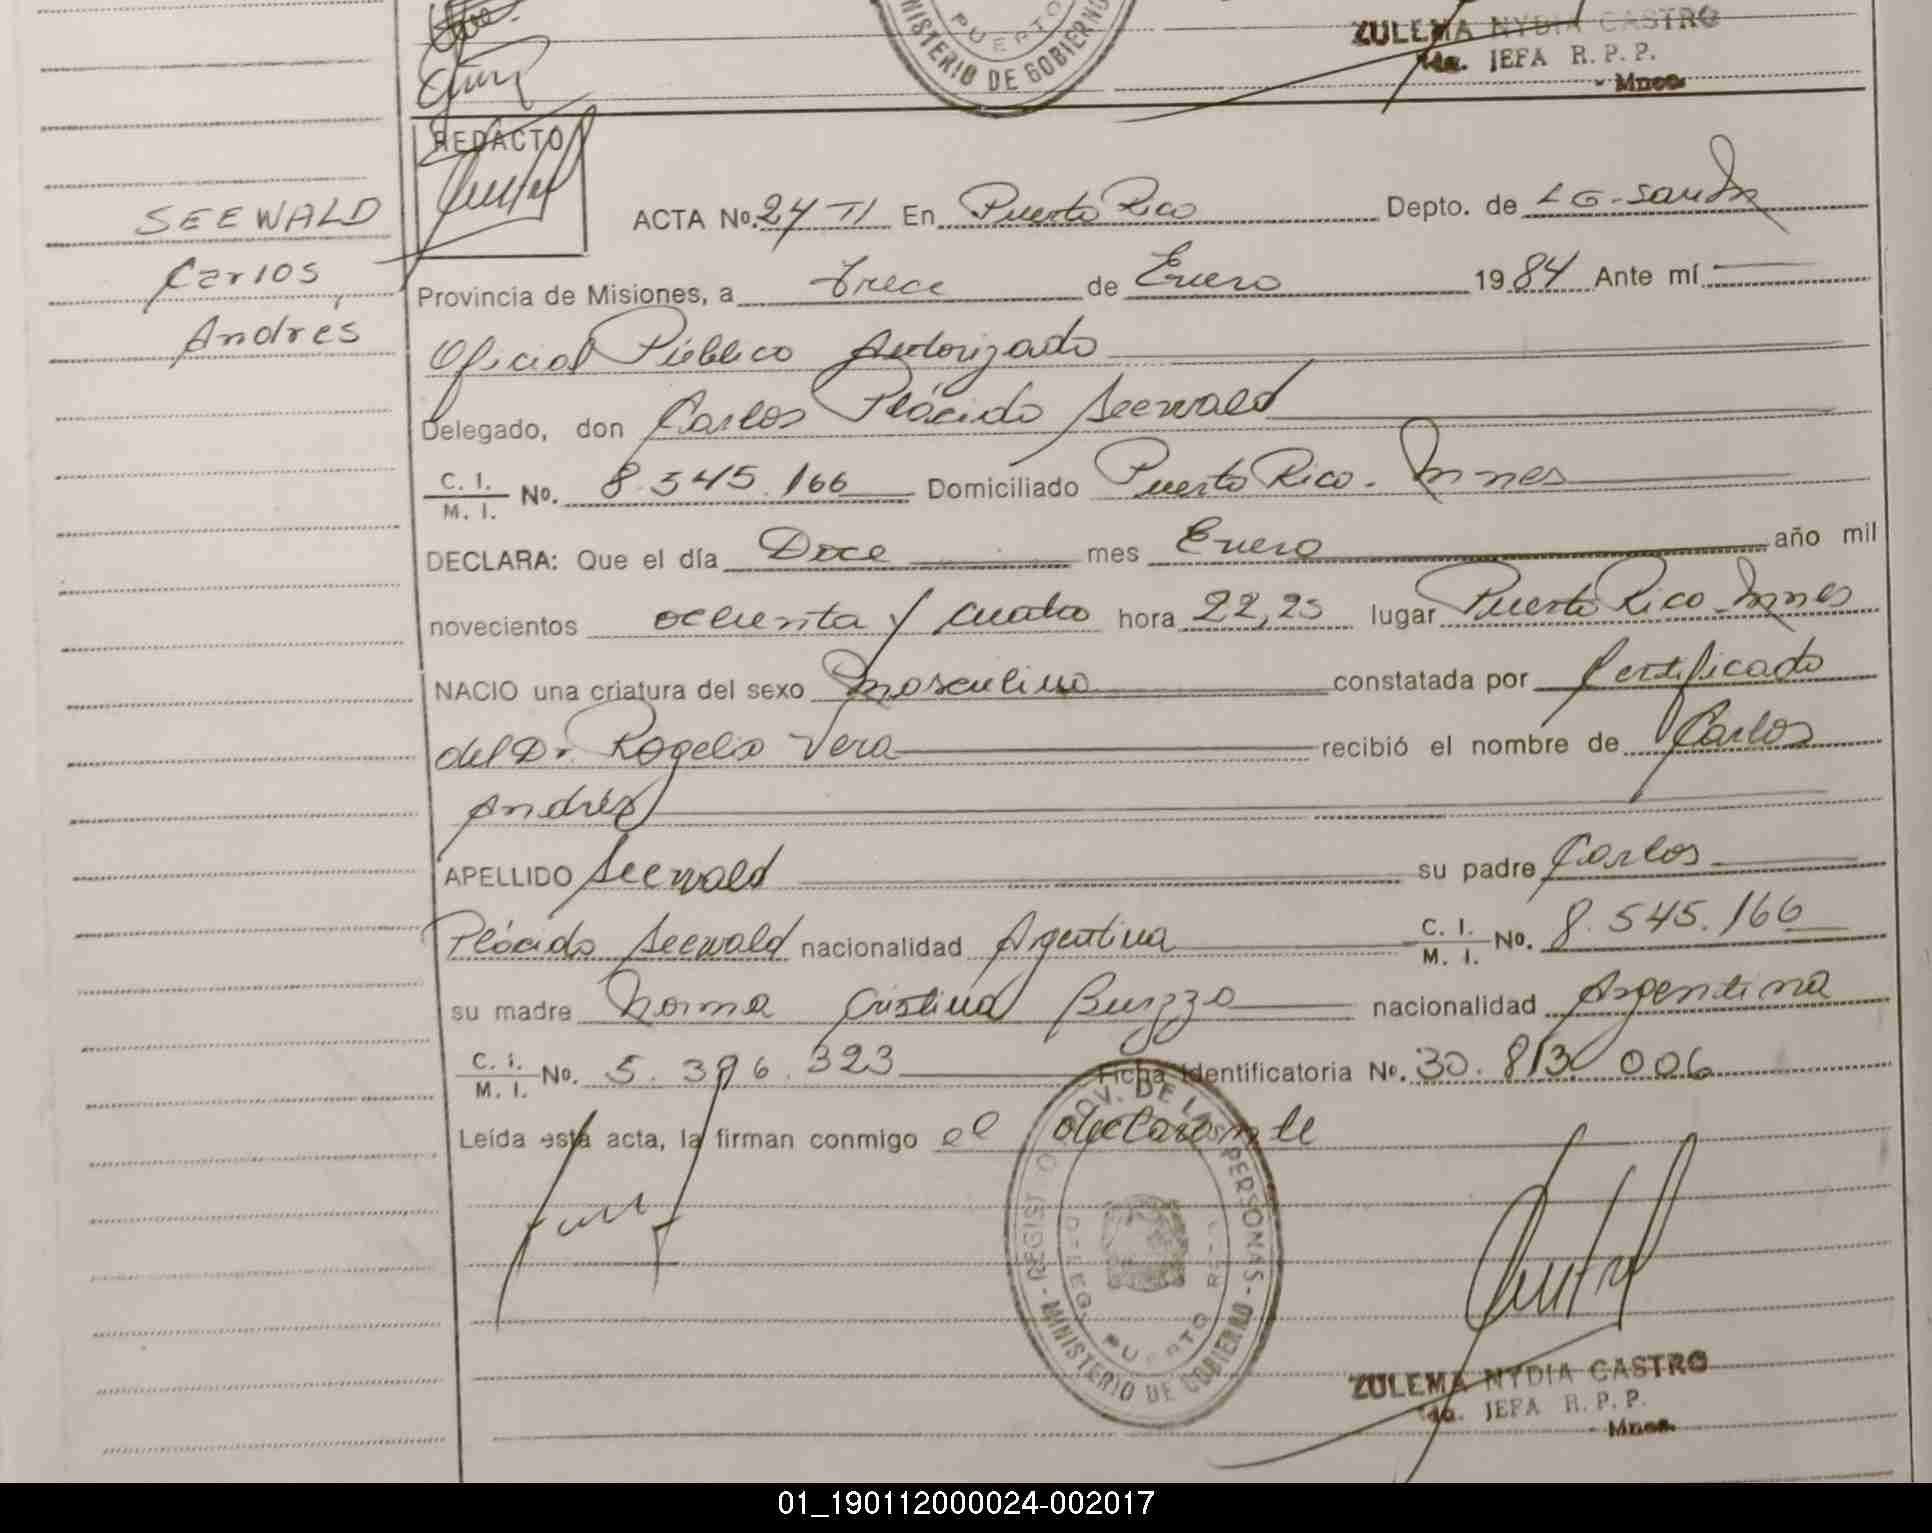 MINISTERIO DE GOBIERNO
PUERTO
ZULEMA NYDIA CASTRO
JEFA R. P. P.
Mnes.
REDACTO
SEEWALD
Carlos
Andrés
ACTA No. 24 TI En Puerto Rico Depto. de L G. San M
Provincia de Misiones, a trece de Enero 1984 Ante mí
Oficial Público Autorizado
Delegado, don Carlos Plácido Seewald
C. I. / M. I. No. 8.545.166 Domiciliado Puerto Rico. Mnes
DECLARA: Que el día Doce mes Enero año mil
novecientos ochenta y cuatro hora 22,25 lugar Puerto Rico Mnes
NACIO una criatura del sexo Masculino constatada por Certificado
del Dr. Rogelio Vera recibió el nombre de Carlos
Andrés
APELLIDO Seewald su padre Carlos
Plácido Seewald nacionalidad Argentina C. I. / M. I. No. 8.545.166
su madre Norma Cristina Buzzo nacionalidad Argentina
C. I. / M. I. No. 5.396.323 Ficha Identificatoria No. 30.813.006
Leída esta acta, la firman conmigo el declarante
REGISTRO PROV. DE LAS PERSONAS - MINISTERIO DE GOBIERNO -
PUERTO RICO
ZULEMA NYDIA CASTRO
JEFA R. P. P.
Mnes.
01_190112000024-002017